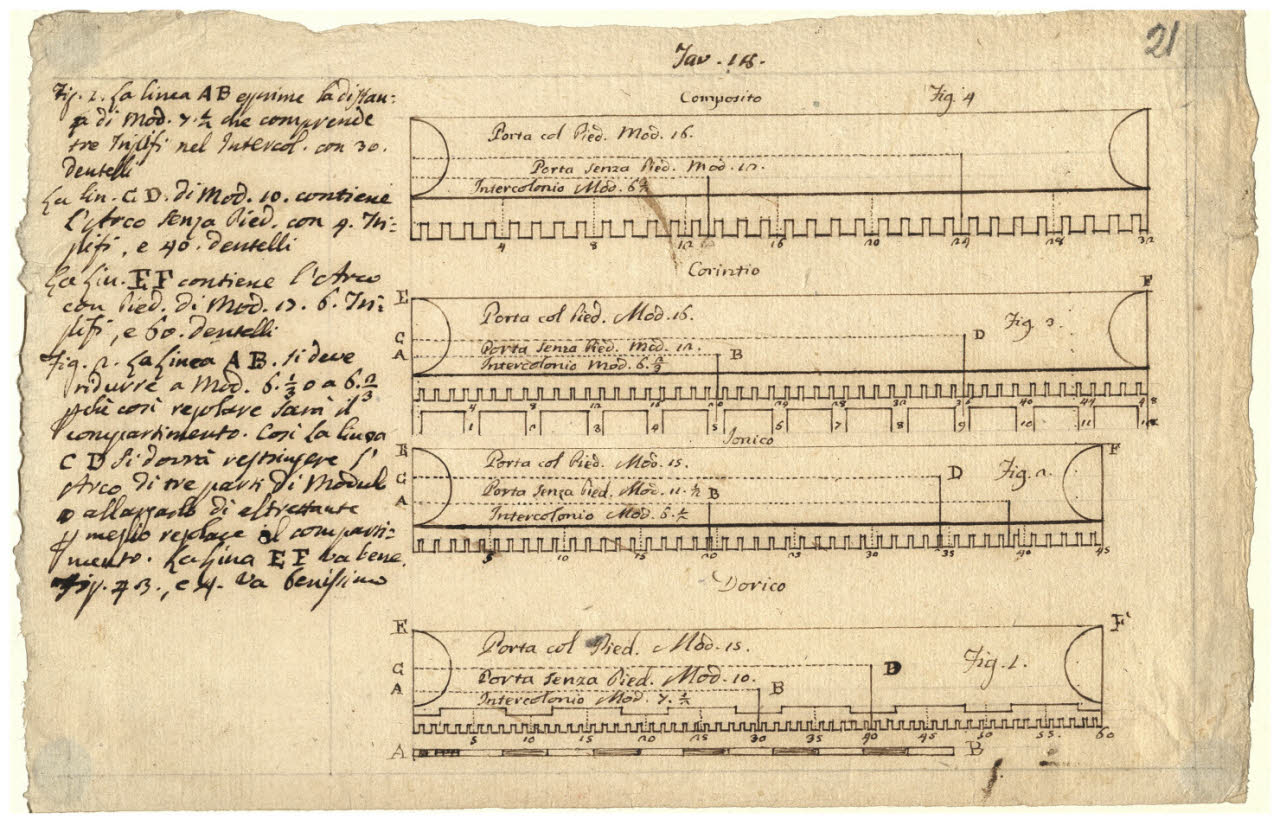 21
Tav. 18.
Fig. 1. La linea AB esprime la distan:
za di Mod. 7 ½ che comprende
tre Triglifi nel Intercol. con 30.
dentelli
La lin. C D. di Mod. 10. contiene
l'Arco senza Pied. con 4. Tri:
glifi, e 40. dentelli
La Lin. EF contiene l'Arco
con Pied. di Mod. 15. 6. Tri:
glifi, e 60. dentelli
Fig. 2. La Linea A B. si deve
ridurre a Mod. 6. 1/3 o a 6. 2/3
così regolare sarà il
compartimento. Così la linea
C D si dovrà restringere l'
Arco di tre parti di Modul
o di altrettante
meglio regolare il comparti:
mento. La linea EF va bene.
Fig. 3., e 4. va benissimo
Composito
Fig. 4
Porta col Pied. Mod. 16.
Porta senza Pied. Mod. 12.
Intercolonio Mod. 6 2/3
4 8 12 16 20 24 28 32
Corintio
E F
Porta col Pied. Mod. 16.
Fig. 3.
C D
Porta senza Pied. Mod. 12.
A B
Intercolonio Mod. 6. 2/3
4 8 12 16 20 24 28 32 36 40 44 48
1 2 3 4 5 6 7 8 9 10 11 12
Ionico
E F
Porta col Pied. Mod. 15.
Fig. 2.
C D
Porta senza Pied. Mod. 11. ½
A B
Intercolonio Mod. 6. ½
5 10 15 20 25 30 35 40 45
Dorico
E F
Porta col Pied. Mod. 15.
Fig. 1.
C D
Porta senza Pied. Mod. 10.
A B
Intercolonio Mod. 7. ½
5 10 15 20 25 30 35 40 45 50 55. 60
A B